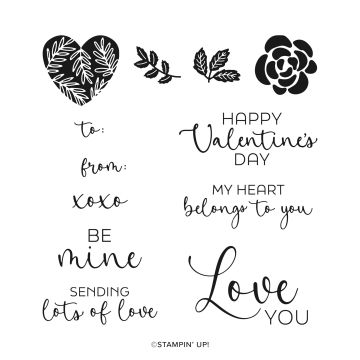 to:
from:
xoxo
BE
mine
SENDING
lots of love
HAPPY
Valentine's
DAY
MY HEART
belongs to you
Love
YOU
©STAMPIN' UP!